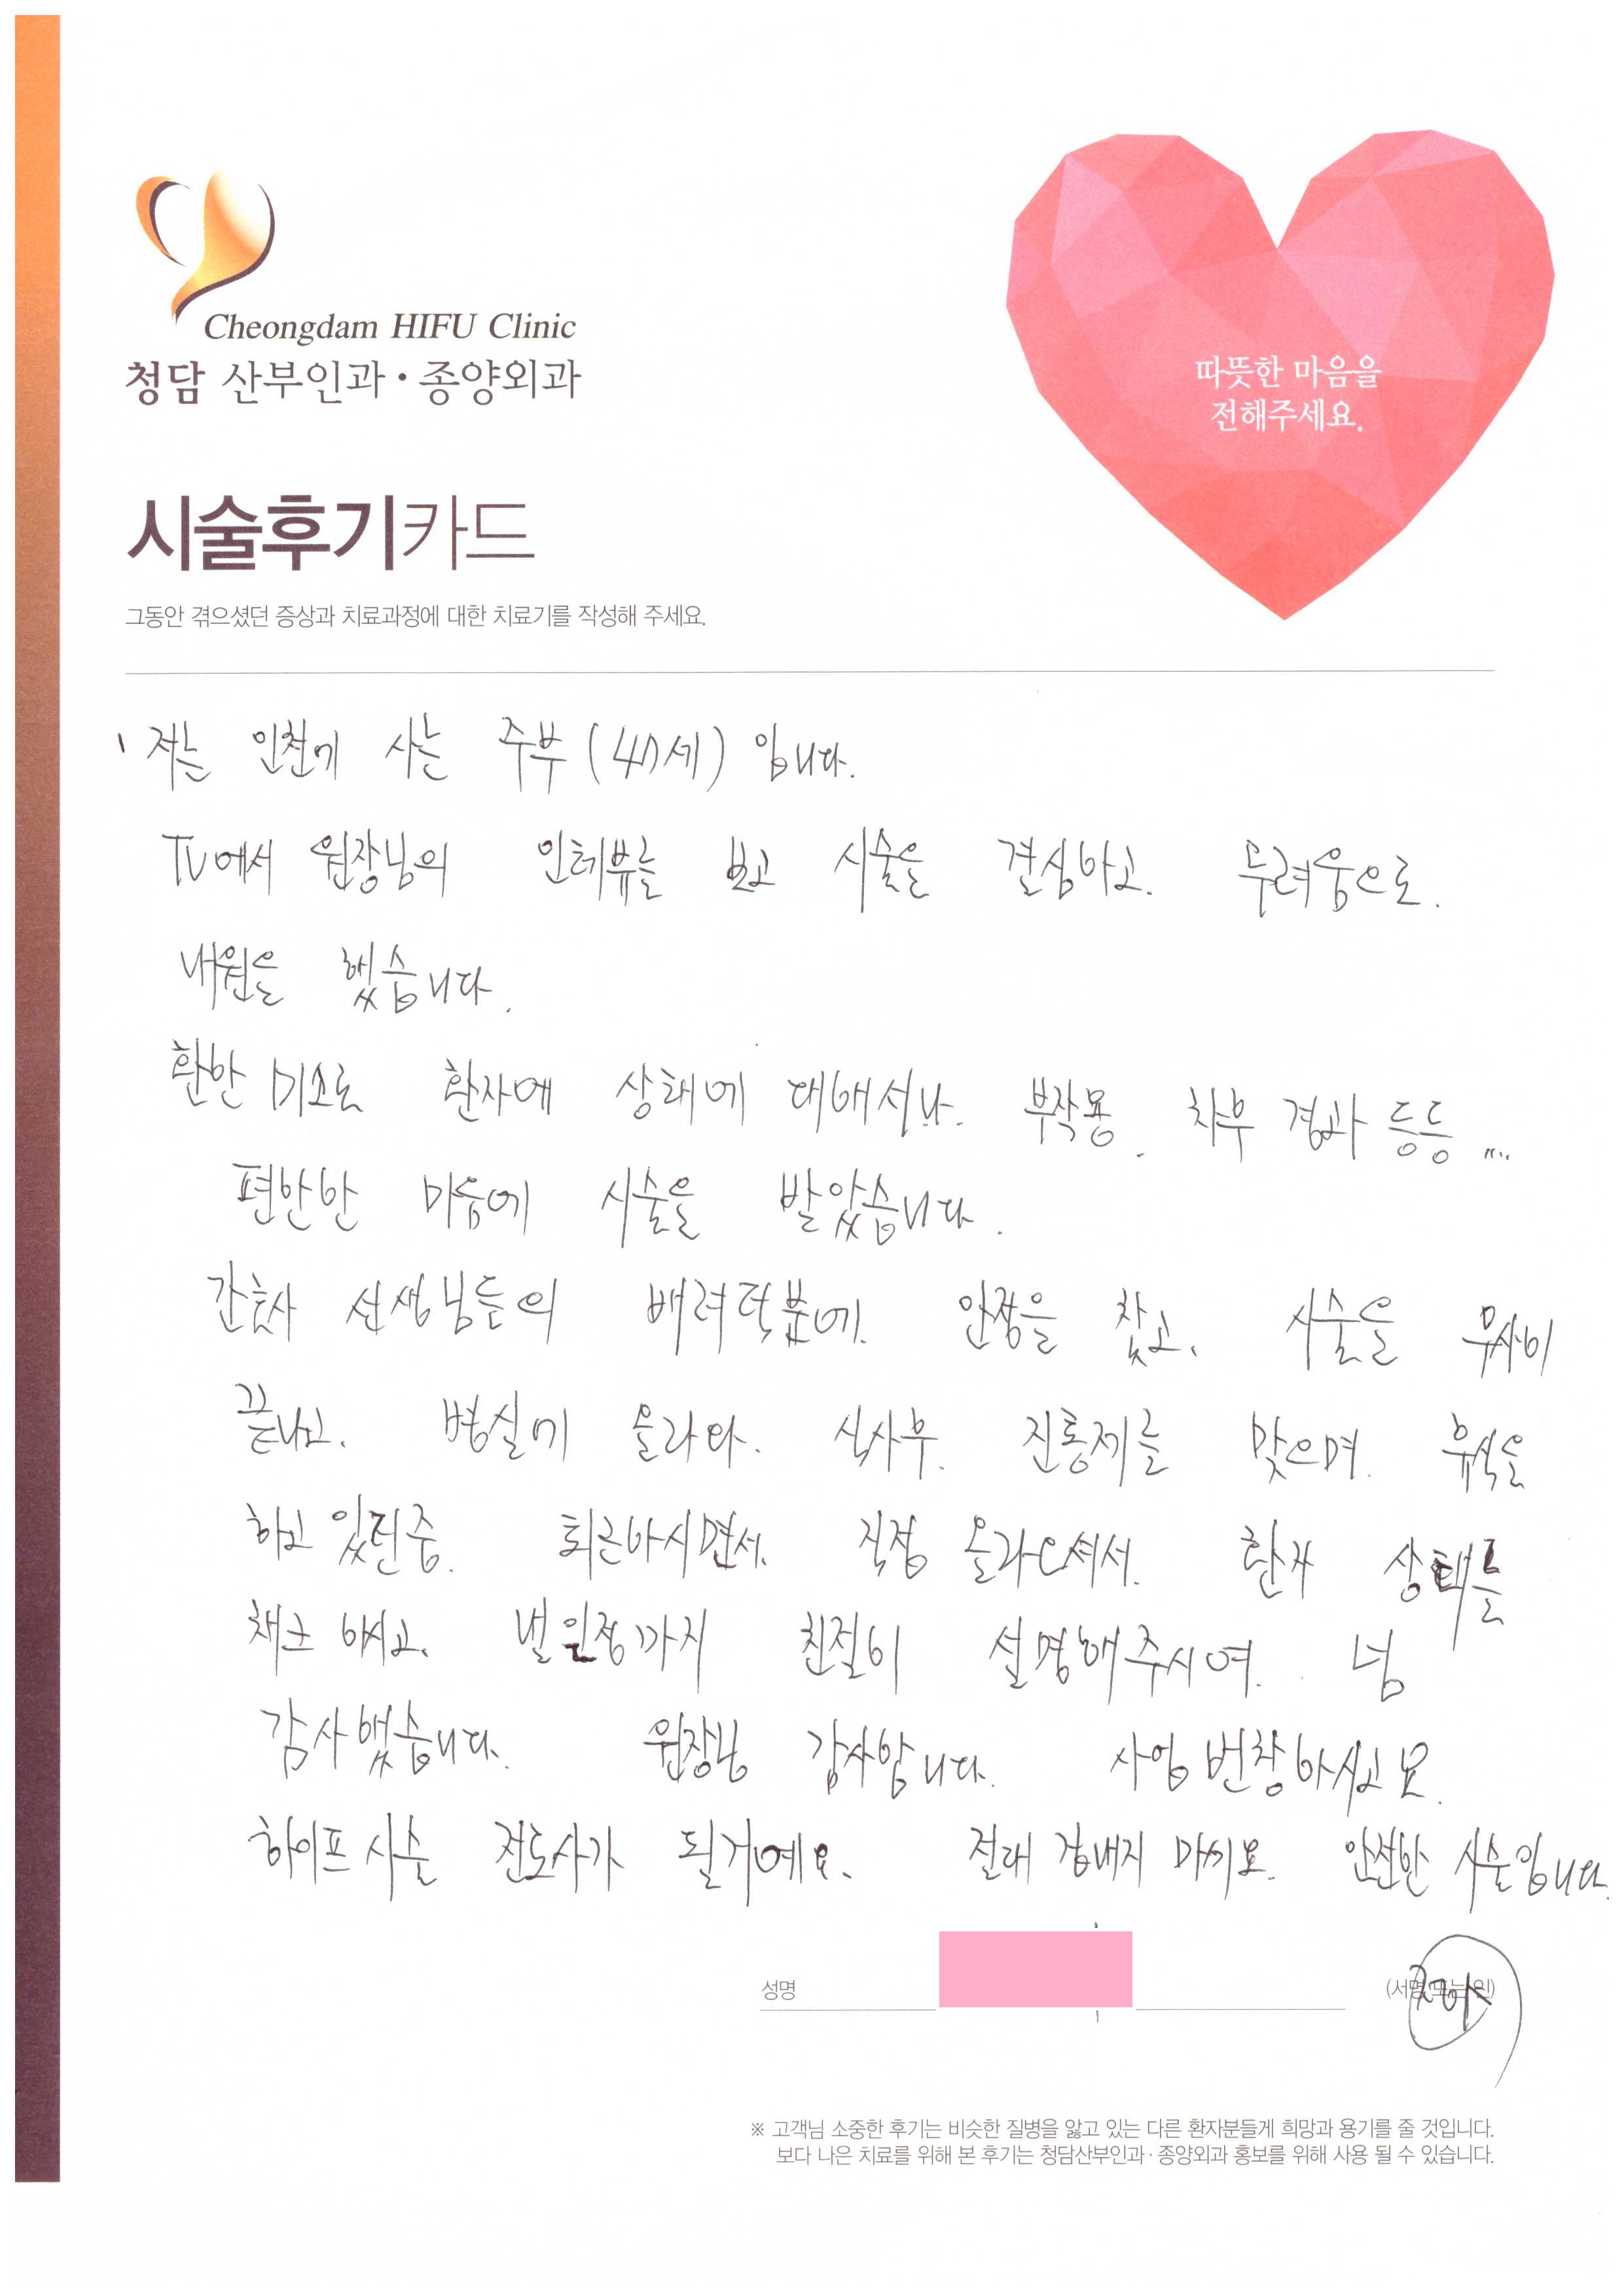 Cheongdam HIFU Clinic
청담 산부인과·종양외과
따뜻한 마음을
전해주세요.
시술후기카드
그동안 겪으셨던 증상과 치료과정에 대한 치료기를 작성해 주세요.
저는 인천에 사는 주부 (47세) 입니다.
TV에서 원장님의 인테뷰를 보고 시술을 결심하고. 두려움으로.
내원을 했습니다.
환한 미소로 환자에 상태에 대해서나. 부작용. 차후 경과 등등 ....
편안한 마음에 시술을 받았습니다.
간호사 선생님들의 배려덕분에. 안정을 찾고. 시술을 무사히
끝나고. 병실에 올라와. 식사후. 진통제를 맞으며. 휴식을
하고 있던중. 퇴근하시면서. 직접 올라오셔서. 환자 상태를
채크 하시고. 별일정까지 친절히 설명해주시여. 넘
감사했습니다. 원장님 감사합니다. 사업 번창하시고요.
하이프 시술 전도사가 될거예요. 절대 겁내지 마세요. 안전한 시술입니다.
성명
(서명 또는 인)
※ 고객님 소중한 후기는 비슷한 질병을 앓고 있는 다른 환자분들게 희망과 용기를 줄 것입니다.
보다 나은 치료를 위해 본 후기는 청담산부인과·종양외과 홍보를 위해 사용 될 수 있습니다.